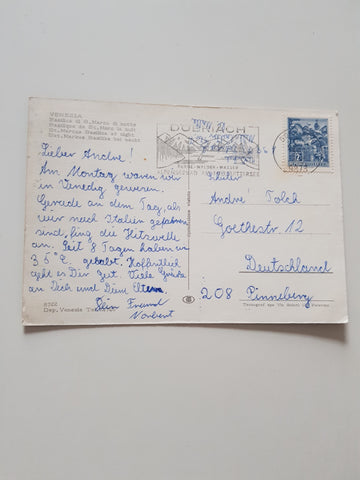 VENEZIA
Basilica di S. Marco di notte
Basilique de St. Marc la nuit
St. Markus Basilica at night
St. Markus Basilika bei nacht
DÖBRIACH
Lieber Andre!
Am Montag waren wir
in Venedig gewesen.
Gerade an dem Tag, als
wir nach Italien gefahren
sind, fing die Hitzwelle
an. Seit 8 Tagen haben wir
35°C gehabt. Hoffentlich
geht es Dir gut. Viele Grüße
an Dich und Deine Eltern
Dein Freund
Norbert
Andre Tolch
Goethestr. 12
Deutschland
208 Pinneberg
Dep. Venezia